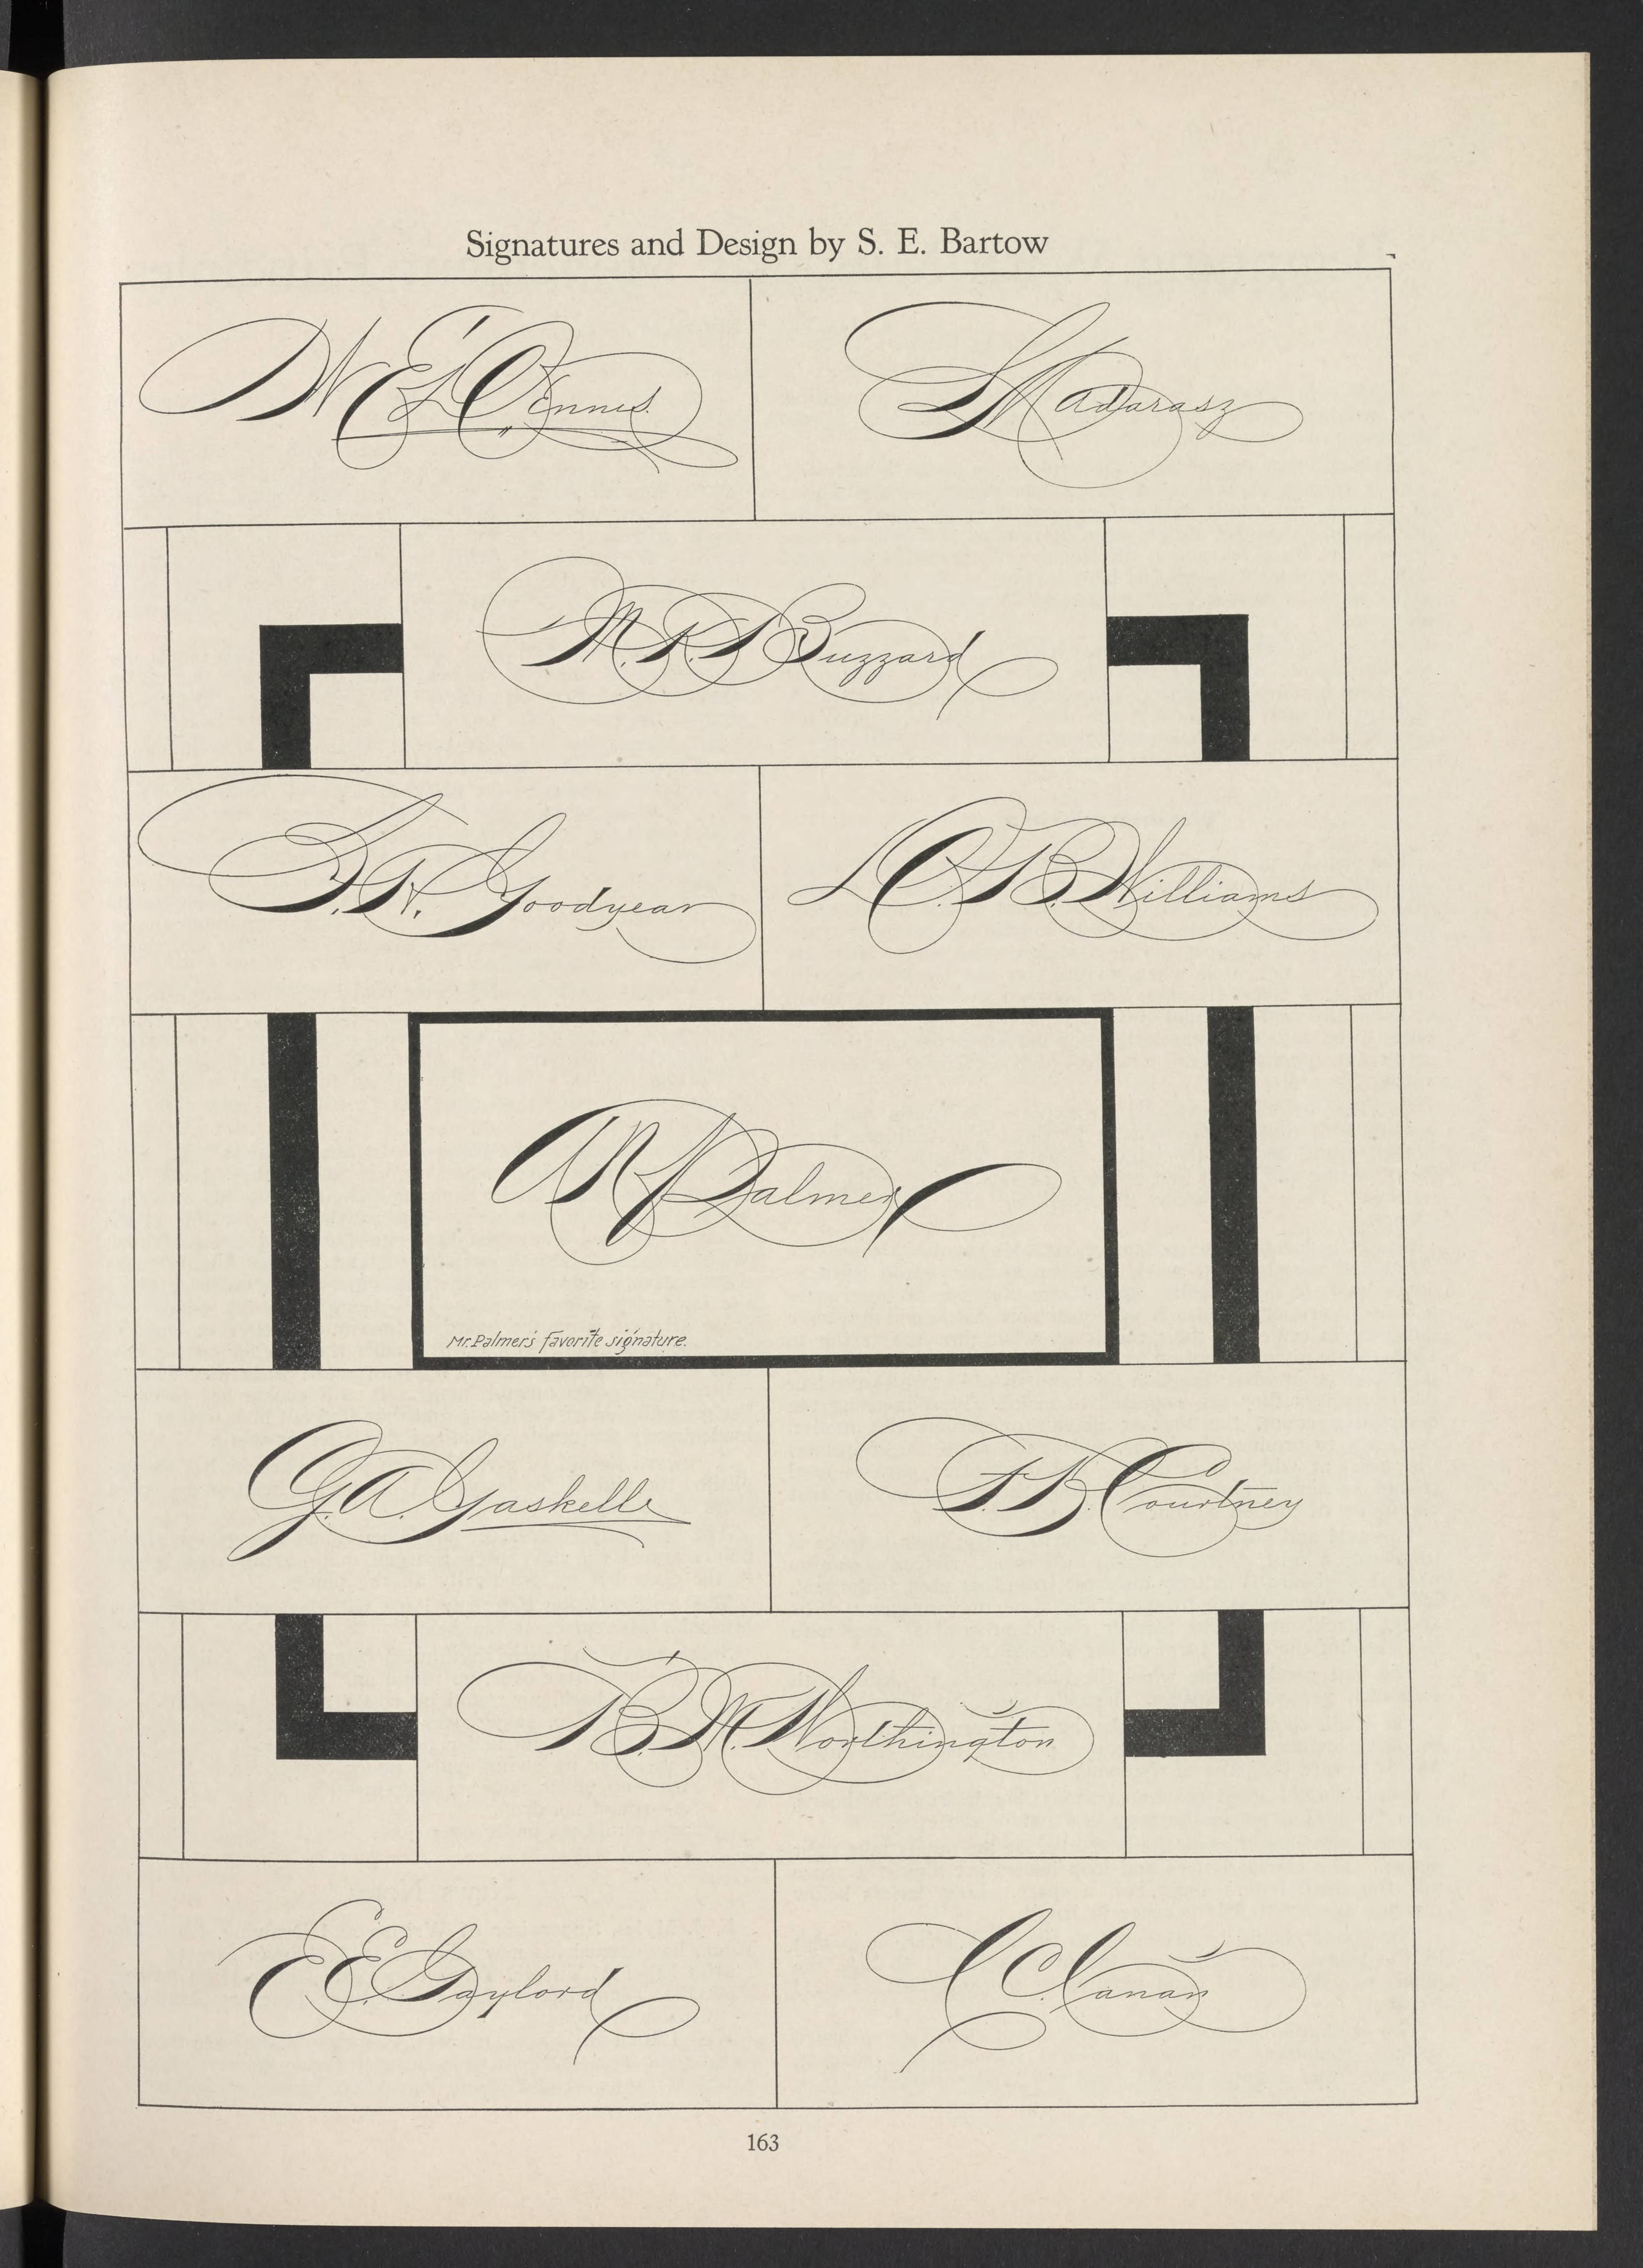 Signatures and Design by S. E. Bartow
W E Dennis.
L Madarasz
M. B. Buzzard
F. W. Goodyear
Williams
A N Palmer
Mr. Palmer's favorite signature.
G. A. Gaskell
F. B. Courtney
B. M. Worthington
E E. Gaylord
C. C. Canan
163